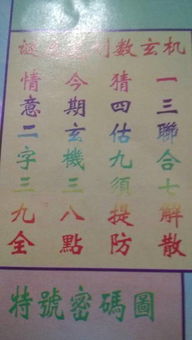 数玄机
一三聯合七解散
猜四估九須提防
今期玄機三八點
情意二字三九全
特號密碼圖